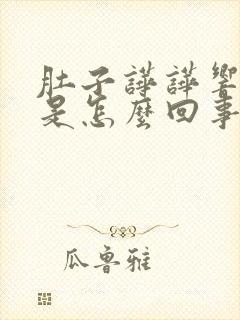 肚子譁譁響
是怎麼回事
瓜魯雅